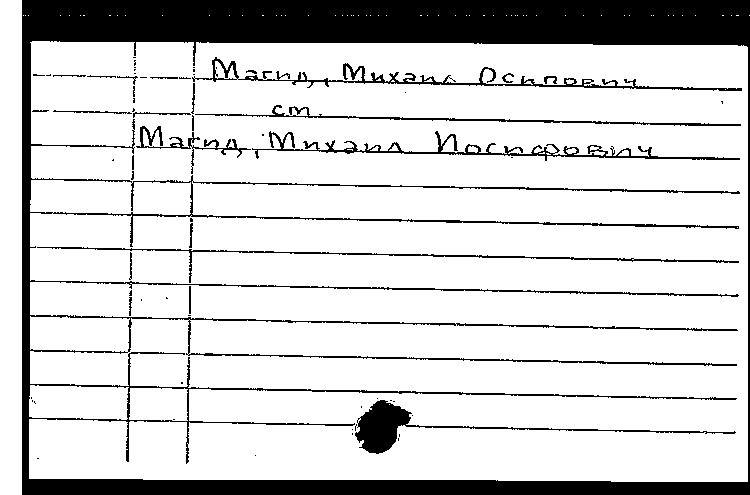 Магид, Михаил Осипович
см.
Магид, Михаил Иосифович